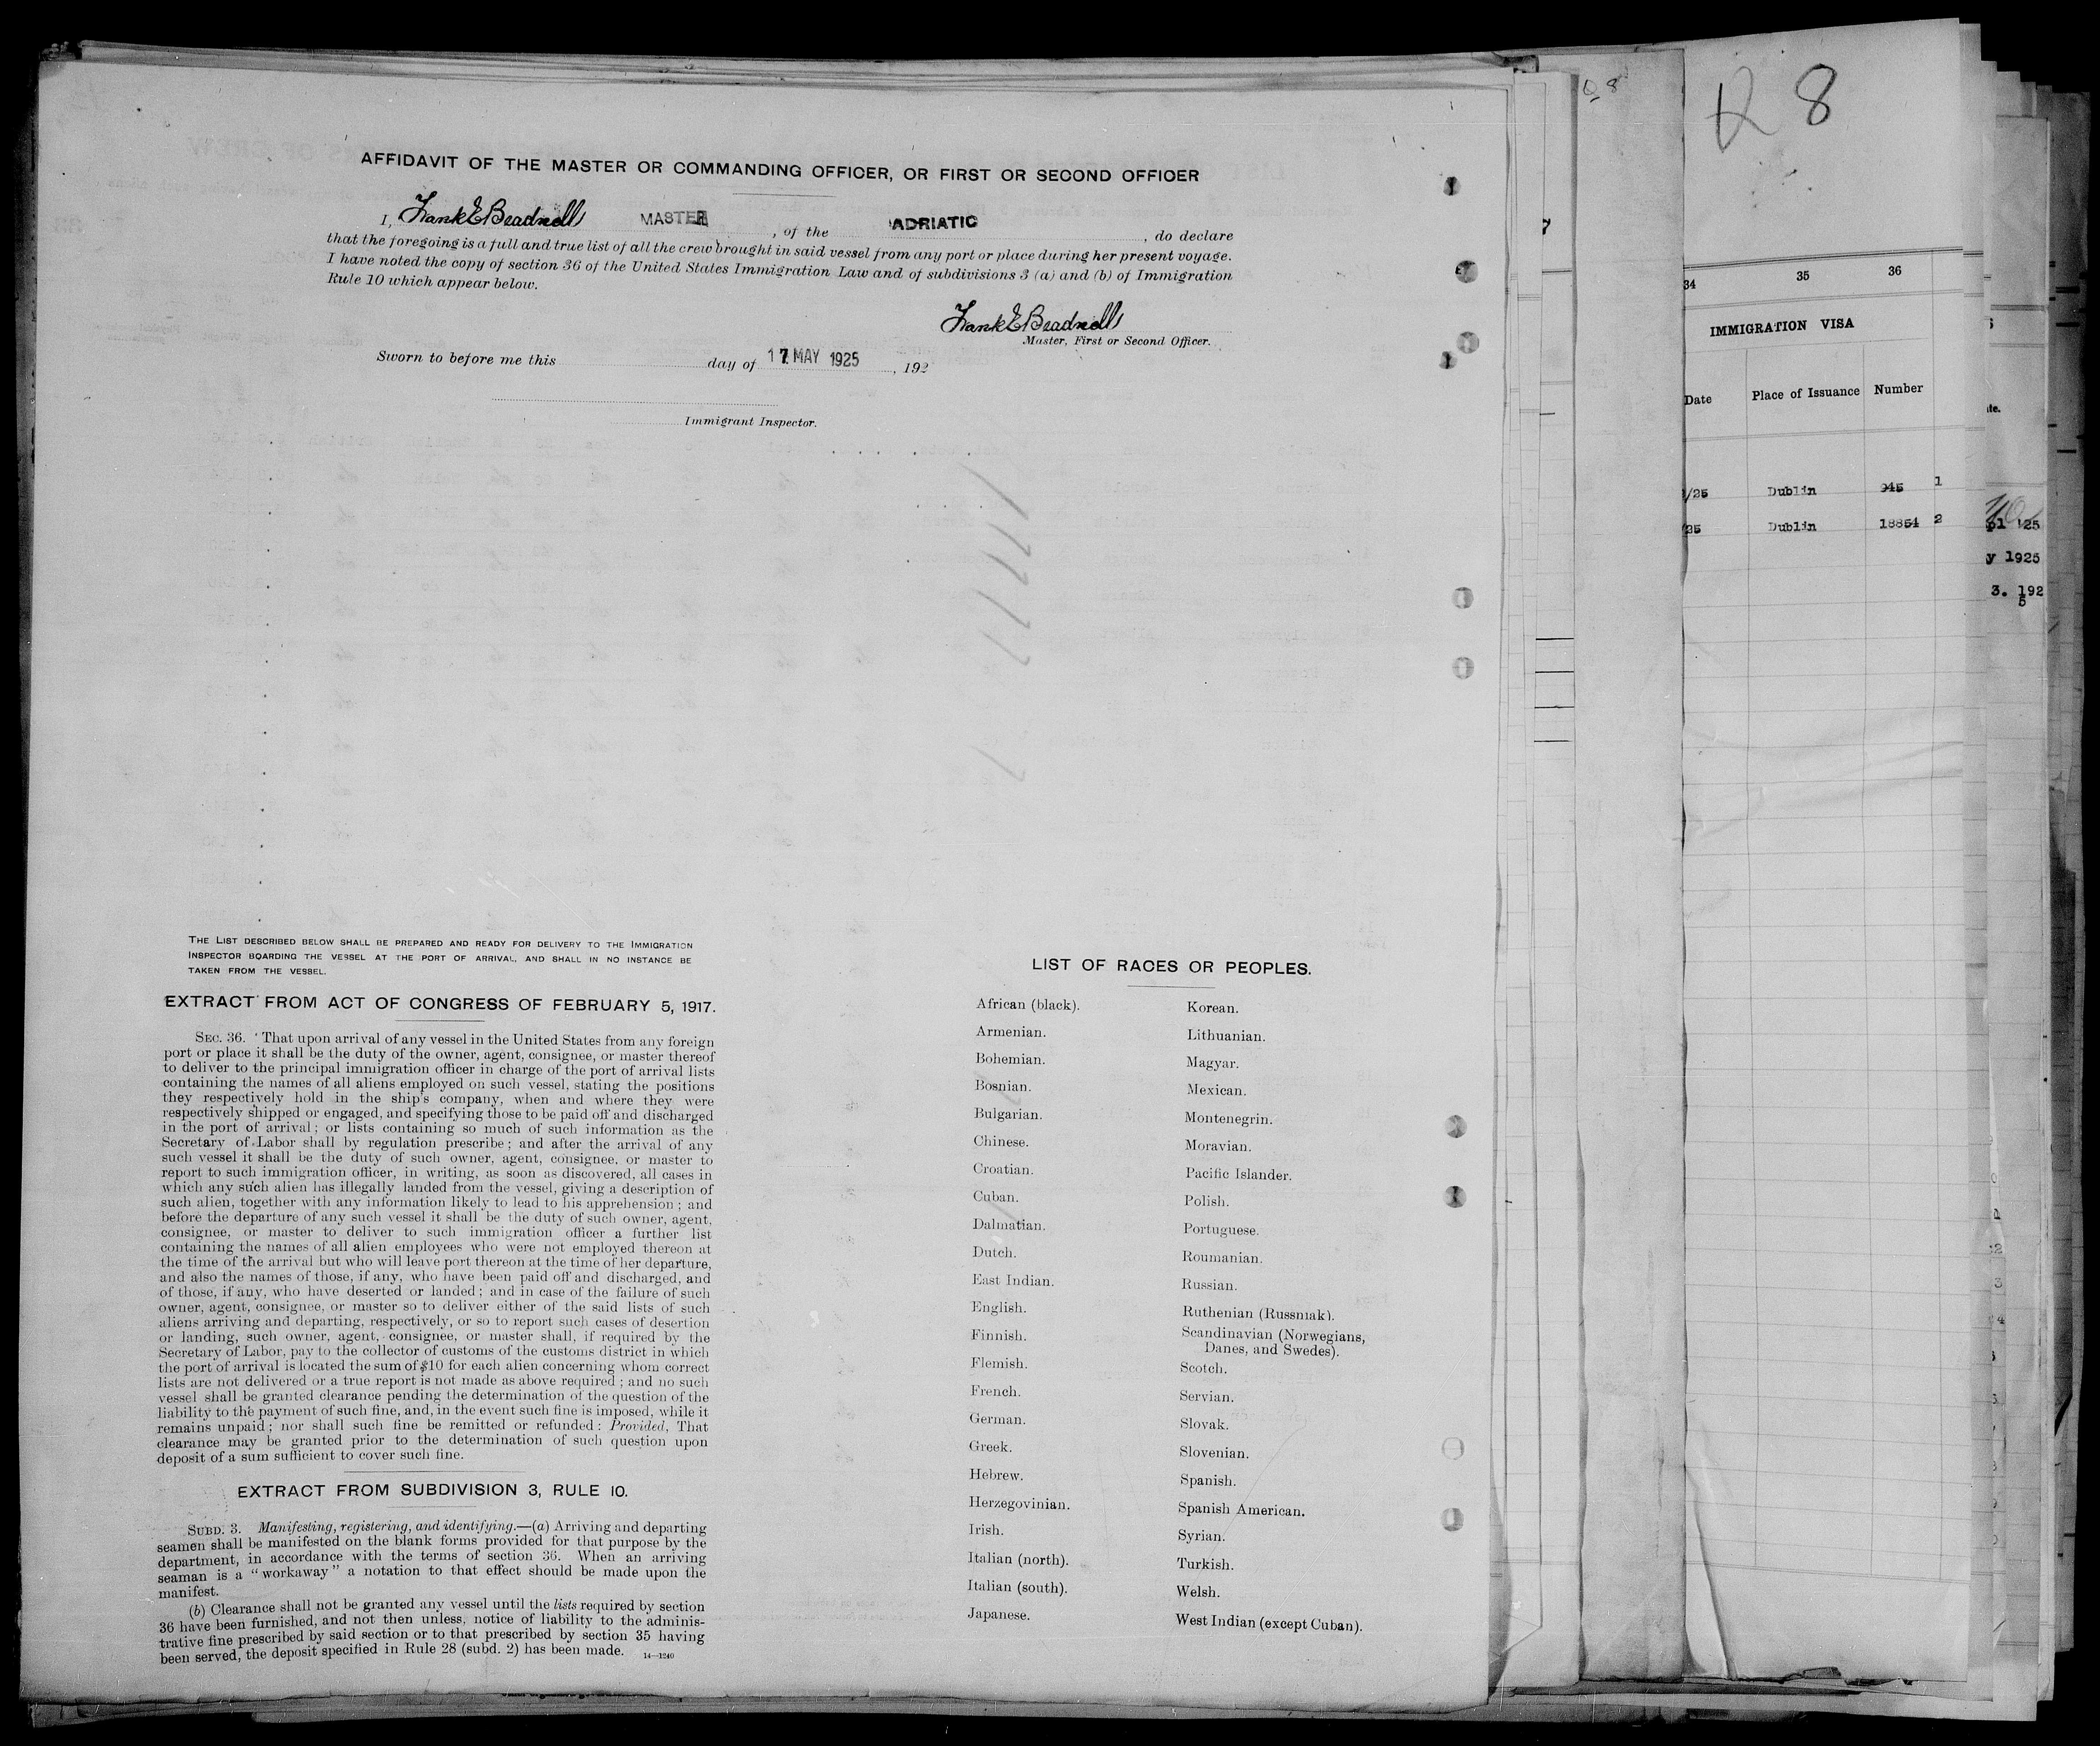 AFFIDAVIT OF THE MASTER OR COMMANDING OFFICER, OR FIRST OR SECOND OFFICER
I, Frank E Beadnell MASTER, of the ADRIATIC, do declare
that the foregoing is a full and true list of all the crew brought in said vessel from any port or place during her present voyage.
I have noted the copy of section 36 of the United States Immigration Law and of subdivisions 3 (a) and (b) of Immigration
Rule 10 which appear below.
Frank E Beadnell
Master, First or Second Officer.
Sworn to before me this day of 17 MAY 1925, 192
Immigrant Inspector.
THE LIST DESCRIBED BELOW SHALL BE PREPARED AND READY FOR DELIVERY TO THE IMMIGRATION
INSPECTOR BOARDING THE VESSEL AT THE PORT OF ARRIVAL, AND SHALL IN NO INSTANCE BE
TAKEN FROM THE VESSEL.
EXTRACT FROM ACT OF CONGRESS OF FEBRUARY 5, 1917.
SEC. 36. That upon arrival of any vessel in the United States from any foreign
port or place it shall be the duty of the owner, agent, consignee, or master thereof
to deliver to the principal immigration officer in charge of the port of arrival lists
containing the names of all aliens employed on such vessel, stating the positions
they respectively hold in the ship's company, when and where they were
respectively shipped or engaged, and specifying those to be paid off and discharged
in the port of arrival; or lists containing so much of such information as the
Secretary of Labor shall by regulation prescribe; and after the arrival of any
such vessel it shall be the duty of such owner, agent, consignee, or master to
report to such immigration officer, in writing, as soon as discovered, all cases in
which any such alien has illegally landed from the vessel, giving a description of
such alien, together with any information likely to lead to his apprehension; and
before the departure of any such vessel it shall be the duty of such owner, agent,
consignee, or master to deliver to such immigration officer a further list
containing the names of all alien employees who were not employed thereon at
the time of the arrival but who will leave port thereon at the time of her departure,
and also the names of those, if any, who have been paid off and discharged, and
of those, if any, who have deserted or landed; and in case of the failure of such
owner, agent, consignee, or master so to deliver either of the said lists of such
aliens arriving and departing, respectively, or so to report such cases of desertion
or landing, such owner, agent, consignee, or master shall, if required by the
Secretary of Labor, pay to the collector of customs of the customs district in which
the port of arrival is located the sum of $10 for each alien concerning whom correct
lists are not delivered or a true report is not made as above required; and no such
vessel shall be granted clearance pending the determination of the question of the
liability to the payment of such fine, and, in the event such fine is imposed, while it
remains unpaid; nor shall such fine be remitted or refunded: Provided, That
clearance may be granted prior to the determination of such question upon
deposit of a sum sufficient to cover such fine.
EXTRACT FROM SUBDIVISION 3, RULE 10.
SUBD. 3. Manifesting, registering, and identifying.—(a) Arriving and departing
seamen shall be manifested on the blank forms provided for that purpose by the
department, in accordance with the terms of section 36. When an arriving
seaman is a "workaway" a notation to that effect should be made upon the
manifest.
(b) Clearance shall not be granted any vessel until the lists required by section
36 have been furnished, and not then unless, notice of liability to the adminis-
trative fine prescribed by said section or to that prescribed by section 35 having
been served, the deposit specified in Rule 28 (subd. 2) has been made. 14—1240
LIST OF RACES OR PEOPLES.
African (black).
Armenian.
Bohemian.
Bosnian.
Bulgarian.
Chinese.
Croatian.
Cuban.
Dalmatian.
Dutch.
East Indian.
English.
Finnish.
Flemish.
French.
German.
Greek.
Hebrew.
Herzegovinian.
Irish.
Italian (north).
Italian (south).
Japanese.
Korean.
Lithuanian.
Magyar.
Mexican.
Montenegrin.
Moravian.
Pacific Islander.
Polish.
Portuguese.
Roumanian.
Russian.
Ruthenian (Russniak).
Scandinavian (Norwegians,
Danes, and Swedes).
Scotch.
Servian.
Slovak.
Slovenian.
Spanish.
Spanish American.
Syrian.
Turkish.
Welsh.
West Indian (except Cuban).
8
34 35 36
IMMIGRATION VISA
Date Place of Issuance Number
/25 Dublin 945 1
/25 Dublin 18854 2
pl '25
y 1925
3. 192
5